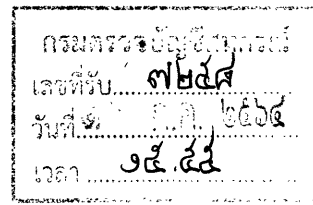 กรมตรวจบัญชีสหกรณ์
เลขที่รับ.....๗๒๕๘
วันที่ ต.ค. ๒๕๖๔
เวลา.....๑๕.๔๕